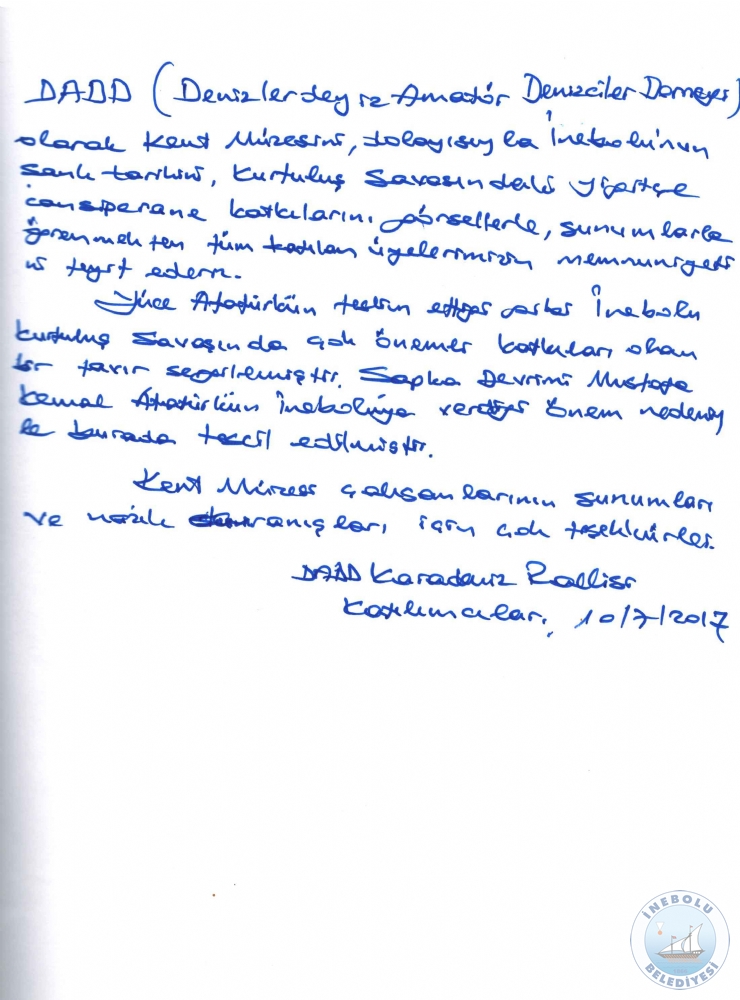 DADD (Denizlerdeyiz Amatör Denizciler Derneği)
olarak Kent Müzesini, dolayısıyla İnebolu'nun
şanlı tarihini, Kurtuluş Savaşındaki yiğitçe
cansiperane katkılarını görsellerle, sunumlarla
öğrenmekten tüm katılan üyelerimizin memnuniyeti
ni teyit ederim.
Yüce Atatürkün teslim ettiği gibi İnebolu
Kurtuluş Savaşında çok önemli katkıları olan
bir tavır sergilemiştir. Şapka Devrimi Mustafa
Kemal Atatürkün İnebolu'ya verdiği önem nedeniy
le burada tescil edilmiştir.
Kent Müzesi çalışanlarının sunumları
ve nazik davranışları için çok teşekkürler.
DADD Karadeniz Rallisi
Katılımcıları, 10/7/2017
İNEBOLU
BELEDİYESİ